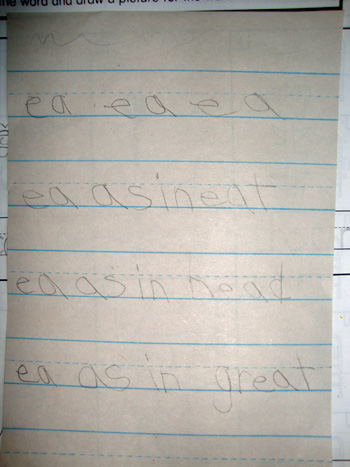 ne word and draw a picture for the
ea ea ea
ea as in eat
ea as in head
ea as in great